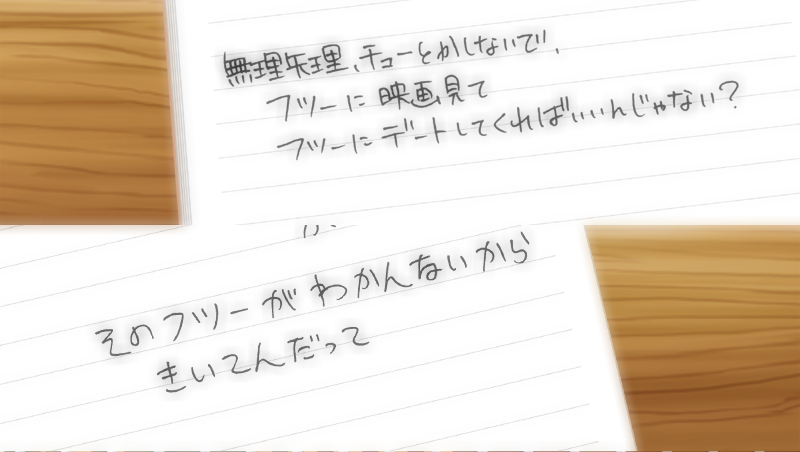 無理矢理、チューとかしないで、
フツーに映画見て
フツーにデートしてくればいいんじゃない?
そのフツーがわかんないから
きいてんだって